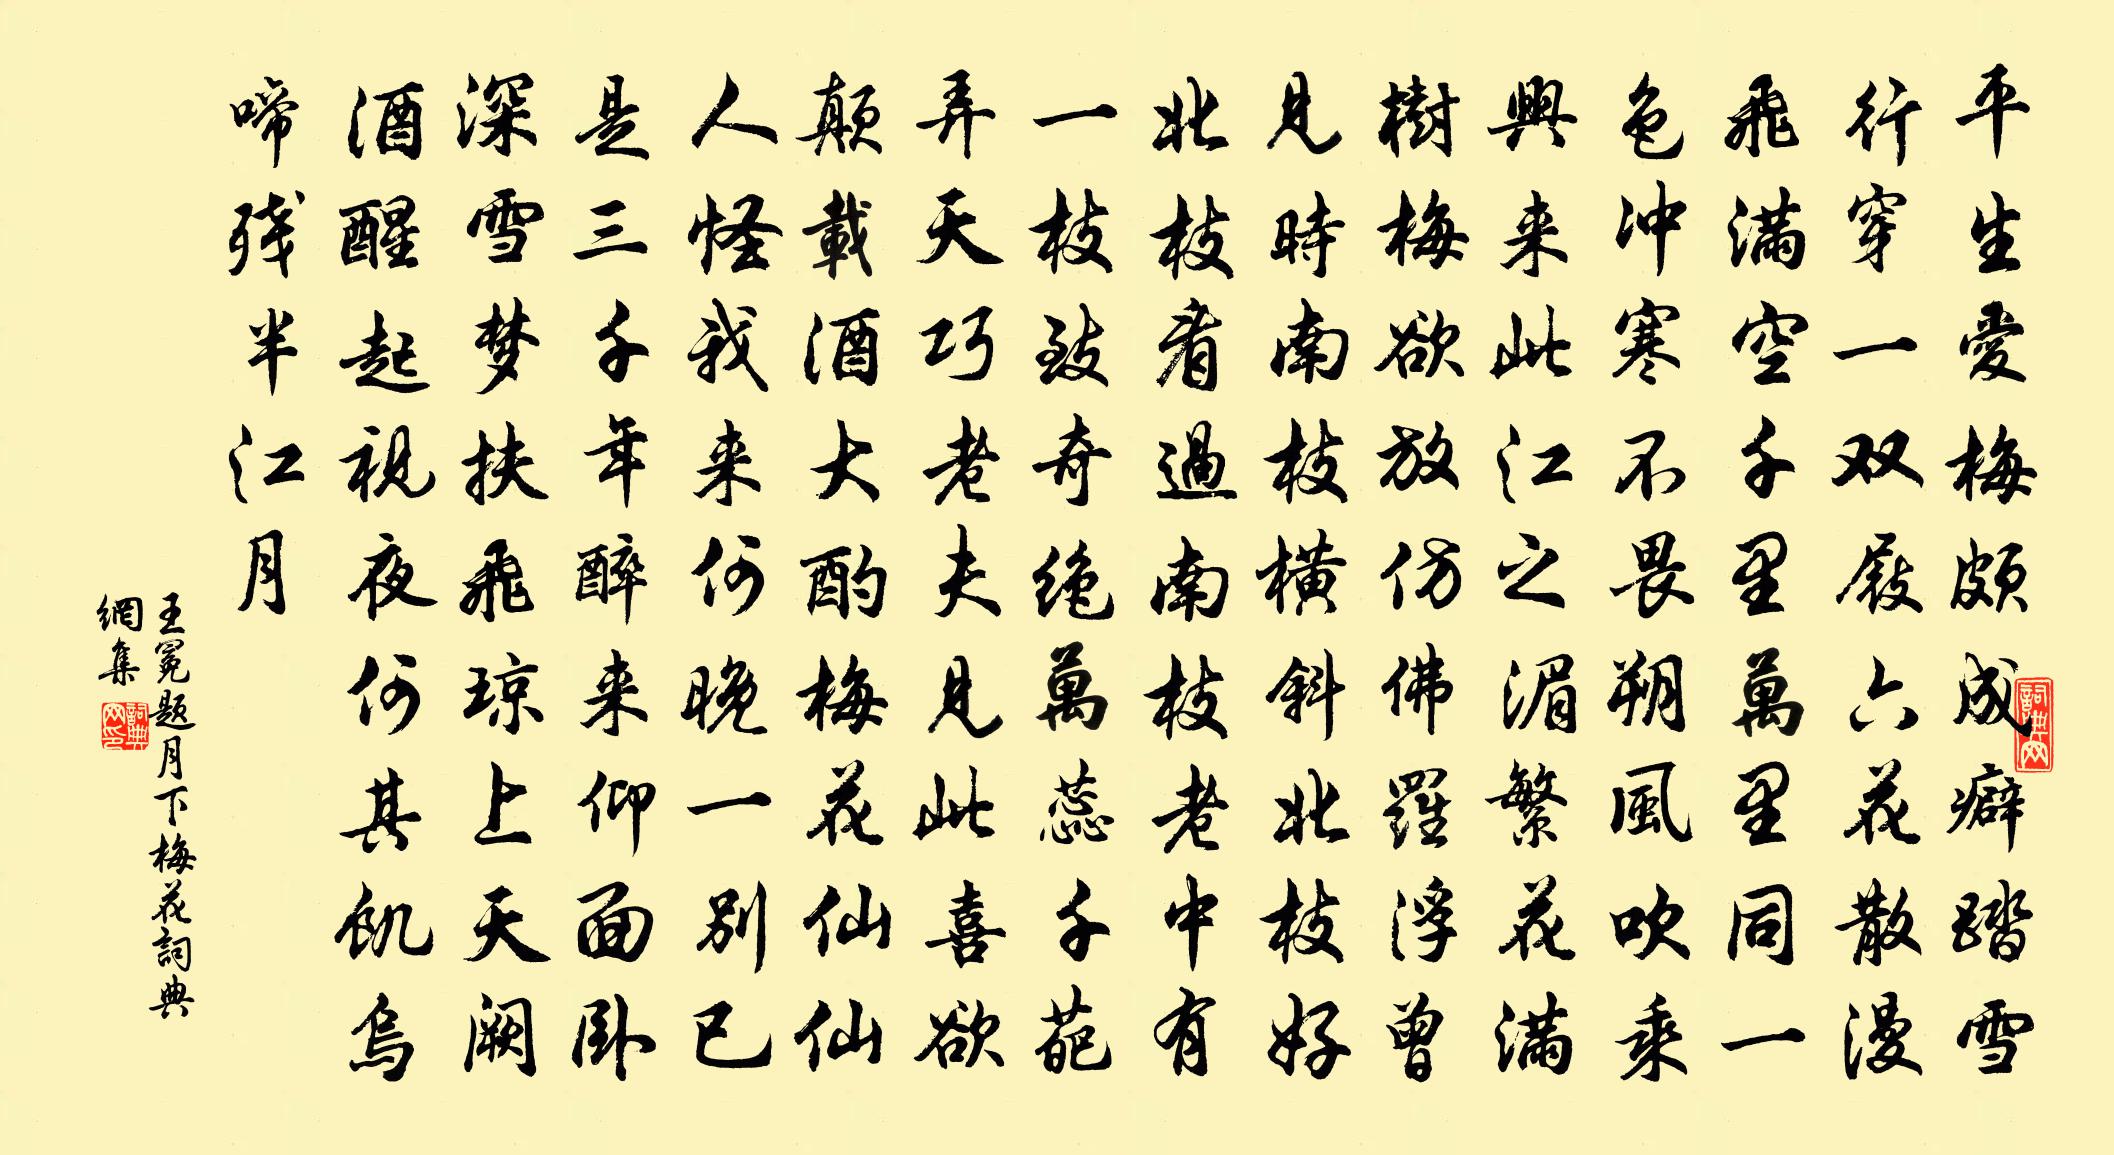 平生愛梅頗成癖踏雪
行穿一双屐六花散漫
飛滿空千里萬里同一
色冲寒不畏朔風吹乘
興来此江之湄繁花滿
樹梅欲放仿佛羅浮曾
見時南枝橫斜北枝好
北枝看過南枝老中有
一枝致奇绝萬蕊千葩
弄天巧老夫見此喜欲
颠載酒大酌梅花仙仙
人怪我来何晚一别已
是三千年醉来仰面卧
深雪梦扶飛琼上天阙
酒醒起視夜何其飢烏
啼残半江月
王冕题月下梅花詞典
網集
詞典网
詞典网印